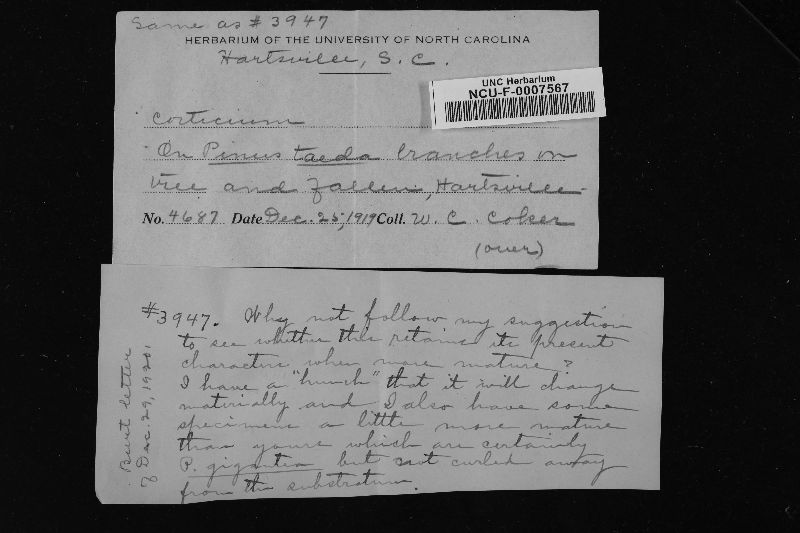 Same as # 3947
HERBARIUM OF THE UNIVERSITY OF NORTH CAROLINA
Hartsville, S. C.
UNC Herbarium
NCU-F-0007567
Corticium
On Pinus taeda branches on
tree and fallen, Hartsville
No. 4687 Date Dec. 25, 1919 Coll. W. C. Coker
(over)
#3947. Why not follow my suggestion
to see whether this retains its present
characters when more mature?
I have a "hunch" that it will change
materially and I also have some
specimens a little more mature
than yours which are certainly
P. gigantea but not curled away
from the substratum.
Burt letter
of Dec. 29, 1920.